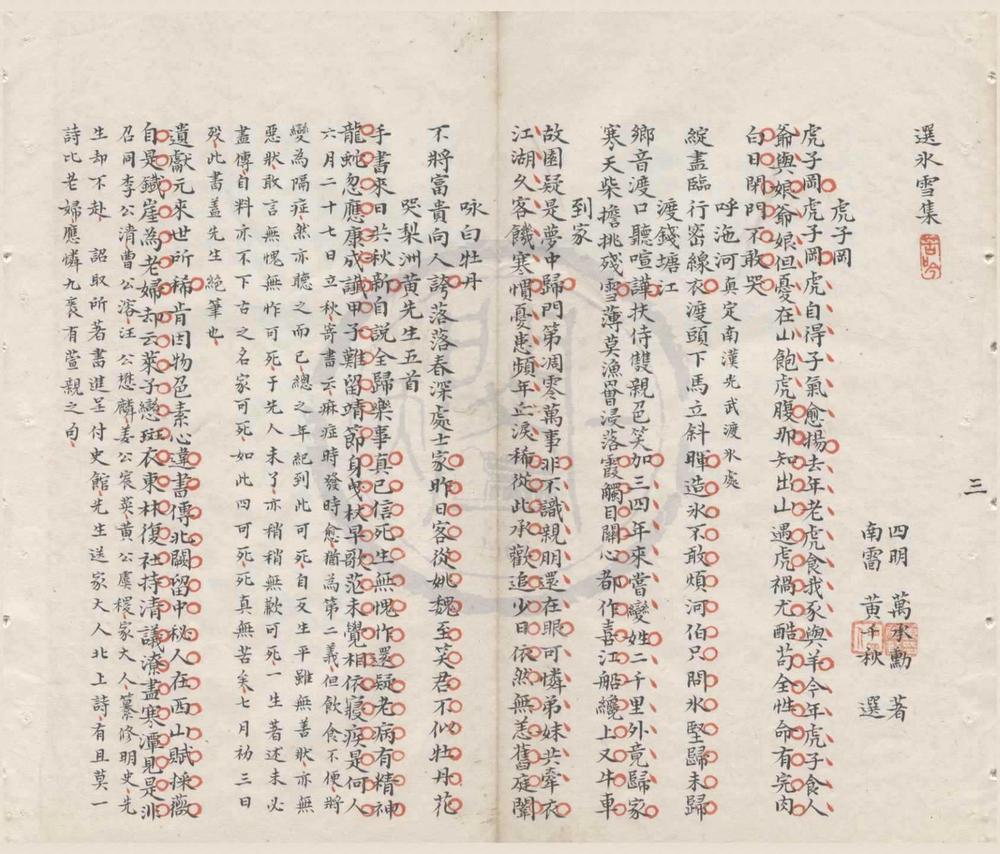 選氷雪集
四明　萬承勳　著
南雷　黃千秋　選
三
虎子岡
虎子岡虎子岡虎自得子氣愈揚去年老虎食我豕與羊今年虎子食人
爺與娘爺娘但憂在山飽虎腹那知出山遇虎禍尤酷苟全性命有完肉
白日閉門不敢哭
呼沲河真定南漢光武渡氷處
綻盡臨行密線衣渡頭下馬立斜暉造氷不敢煩河伯只問氷堅歸未歸
渡錢塘江
鄉音渡口聽喧譁扶侍雙親色笑加三四年來當變姓二千里外竟歸家
寒天柴擔挑殘雪薄莫漁罾浸落霞觸目關心都作喜江船纔上又牛車
到家
故園疑是夢中歸門第凋零萬事非不識親朋還在眼可憐弟妹共牽衣
江湖久客饑寒慣憂患頻年血淚稀從此承歡追少日依然無恙舊庭闈
咏白牡丹
不將富貴向人誇落落春深處士家昨日客從姚魏至笑君不似牡丹花
哭梨洲黃先生五首
手書來日共秋新自說全歸樂事真已信死生無愧怍還疑老病有精神
龍蛇忽應康成讖甲子難留靖節身曳杖早歌恣未覺相依寢疾是何人
六月二十七日立秋寄書云痳症時發時愈猶為第二義但飲食不便將
變為隔症然亦聽之而已總之年紀到此可死自反生平雖無善狀亦無
惡狀敢言無愧無怍可死于先人未了亦稍稍無歉可死一生著述未必
盡傳自料亦不下古之名家可死如此四可死死真無苦矣七月初三日
歿此書蓋先生絕筆也
遺獻元來世所稀肯因物色素心違書傳北闕留中秘人在西山賦採薇
自是鐵崖為老婦却云萊子戀斑衣東林復社持清議潦盡寒潭見是非
召同李公清曹公溶汪公懋麟姜公宸英黃公虞稷家大人纂修明史先
生却不赴　詔取所著書進呈付史館先生送家大人北上詩有且莫一
詩比老婦應憐九袠有萱親之句